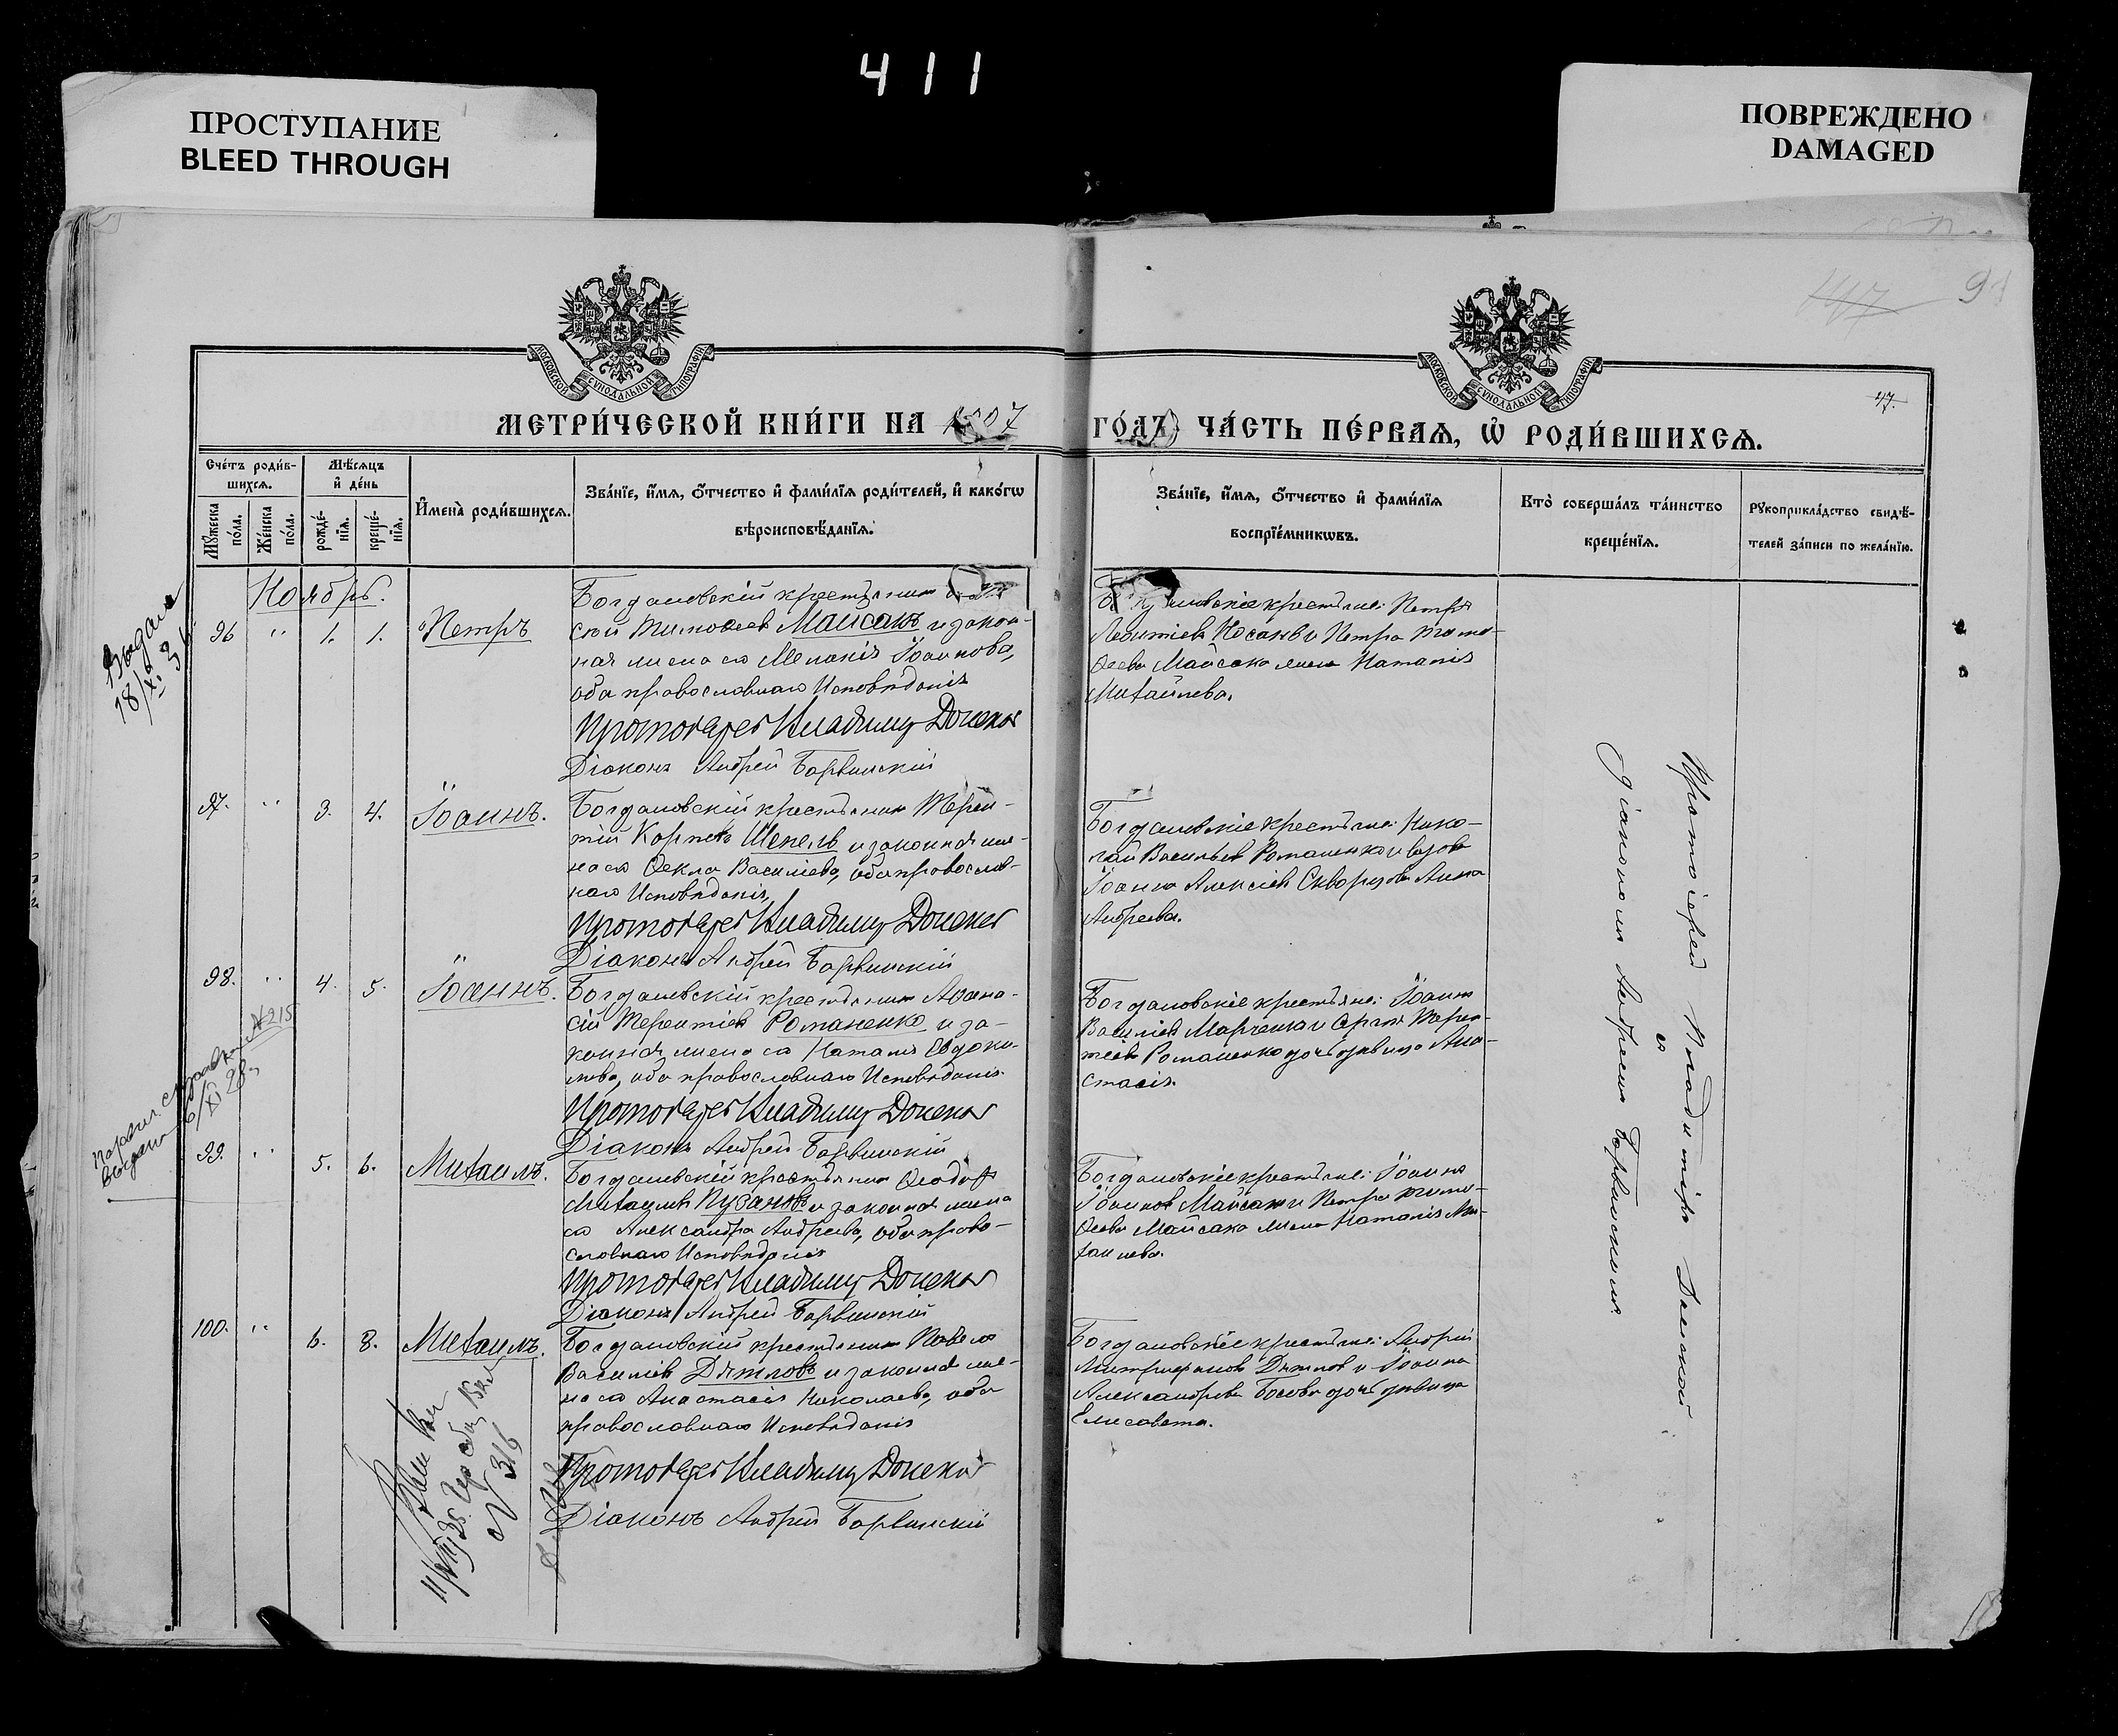 411
ПРОСТУПАНИЕ
BLEED THROUGH
ПОВРЕЖДЕНО
DAMAGED
91
47.
МОСКОВСКОЙ СУНОДАЛЬНОЙ ТИПОГРАФИИ
МОСКОВСКОЙ СУНОДАЛЬНОЙ ТИПОГРАФИИ
МЕТРИ́ЧЕСКОЙ КНИ́ГИ НА 1907
ГО́ДЪ, ЧА́СТЬ ПЕ́РВАѦ, Ѡ҆ РОДИ́ВШИХСѦ.
Сче́тъ роди́в-
шихсѧ.
Мѣ́сѧцъ
и҆ де́нь
Мꙋ́жеска по́ла.
Же́нска по́ла.
рожде́-
нїѧ.
креще́-
нїѧ.
И҆мена̀ роди́вшихсѧ.
Зва́нїе, и҆́мѧ, о҆́тчество и҆ фами́лїѧ роди́телей, и҆ како́гѡ
вѣроисповѣ́данїѧ.
Зва́нїе, и҆́мѧ, о҆́тчество и҆ фами́лїѧ
воспрїе́мникѡвъ.
Кто̀ соверша́лъ та́инство
креще́нїѧ.
Рꙋкоприкла́дство свидѣ́-
телей за́писи по жела́нїю.
Ноябрь.
96 " 1. 1. Петръ
Богдановскій крестьянинъ
Тимоѳеев Майсакъ и закон-
ная жена его Меланія Іоаннова,
оба православнаго Исповѣданія
Протоіерей Владимир Донской
Діаконъ Андрей Барвинскій
крестьяне: Петръ
Леонтіев Носак и Петра Тимо-
ѳеева Майсака жена Наталія
Михайлова.
Выдана
18/XI 36
97. " 3. 4. Іоаннъ.
Богдановскій крестьянин Терен-
тій Карпов Шепель и законная же-
на его Ѳекла Василіева, оба православ-
наго Исповѣданія,
Протоіерей Владимир Донской
Діаконъ Андрей Барвинскій
Богдановскіе крестьяне: Нико-
лай Васильев Романенко и вдова
Іоанна Алексіев Скворцова Анна
Андреева.
98. " 4. 5. Іоаннъ.
Богдановскій крестьянин Аѳана-
сій Терентіев Романенко и за-
конная жена его Наталія Евдоки-
мова, оба православнаго Исповѣданія
Протоіерей Владимир Донской
Діаконъ Андрей Барвинскій
Богдановскіе крестьяне: Іоанн
Василіев Марченко и Сергія Терен-
тіева Романенко дочь дѣвица Ана-
стасія.
№215
выдана 6/XI 28
99. " 5. 6. Михаилъ.
Богдановскій крестьянин Ѳеодор
Михаилов Пусанов и законная жена
его Александра Андреева, оба право-
славнаго Исповѣданія
Протоіерей Владимир Донской
Діаконъ Андрей Барвинскій
Богдановскіе крестьяне: Іоанн
Іоаннов Майсак и Петра Тимо-
ѳеева Майсака жена Наталія Ми-
хаилова.
100. " 6. 8. Михаилъ.
Богдановскій крестьянин Павел
Василіев Дятлов и законная же-
на его Анастасія Николаева, оба
православнаго Исповѣданія
Протоіерей Владимир Донской
Діаконъ Андрей Барвинскій
Богдановскіе крестьяне: Андрей
Митрофанов Дятлов и Іоанна
Александрова Босова дочь дѣвица
Елисавета.
№ 316
Протоіерей Владимір Донской
съ
діаконом Андреем Барвинским.